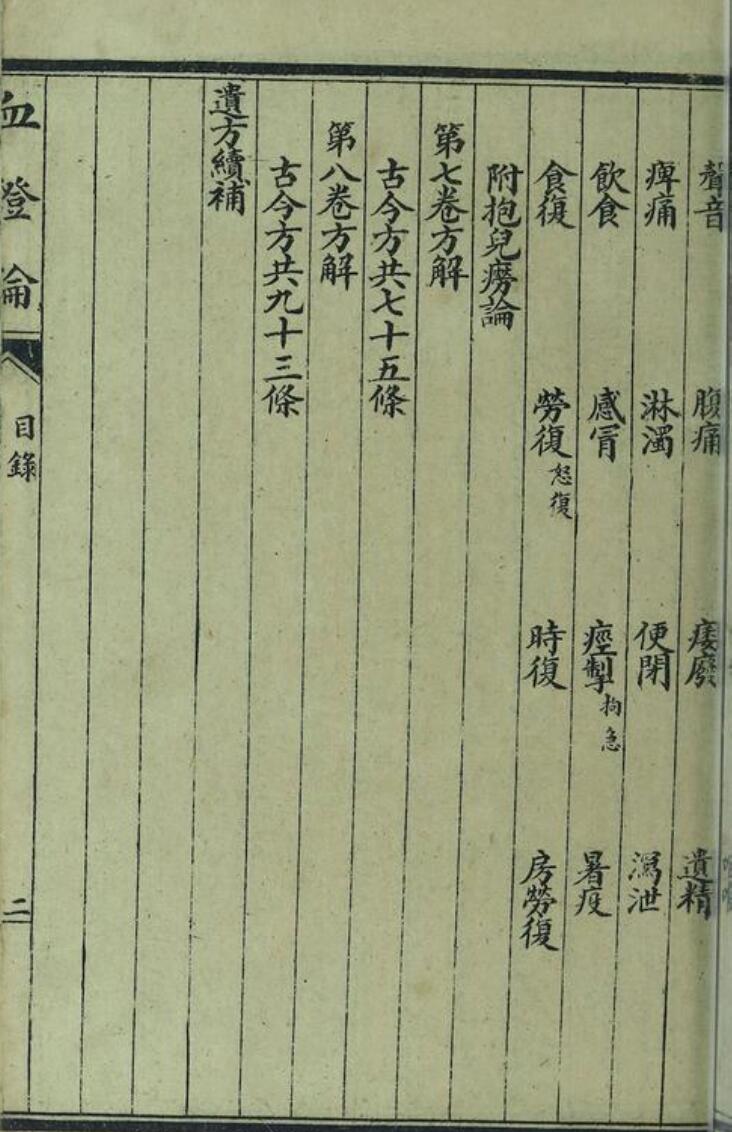 聲音 腹痛 痿廢 遺精
痺痛 淋濁 便閉 瀉泄
飲食 感冒 痙掣拘急 暑疫
食復 勞復怒復 時復 房勞復
附抱兒癆論
第七卷方解
古今方共七十五條
第八卷方解
古今方共九十三條
遺方續補
血證論
目錄
二